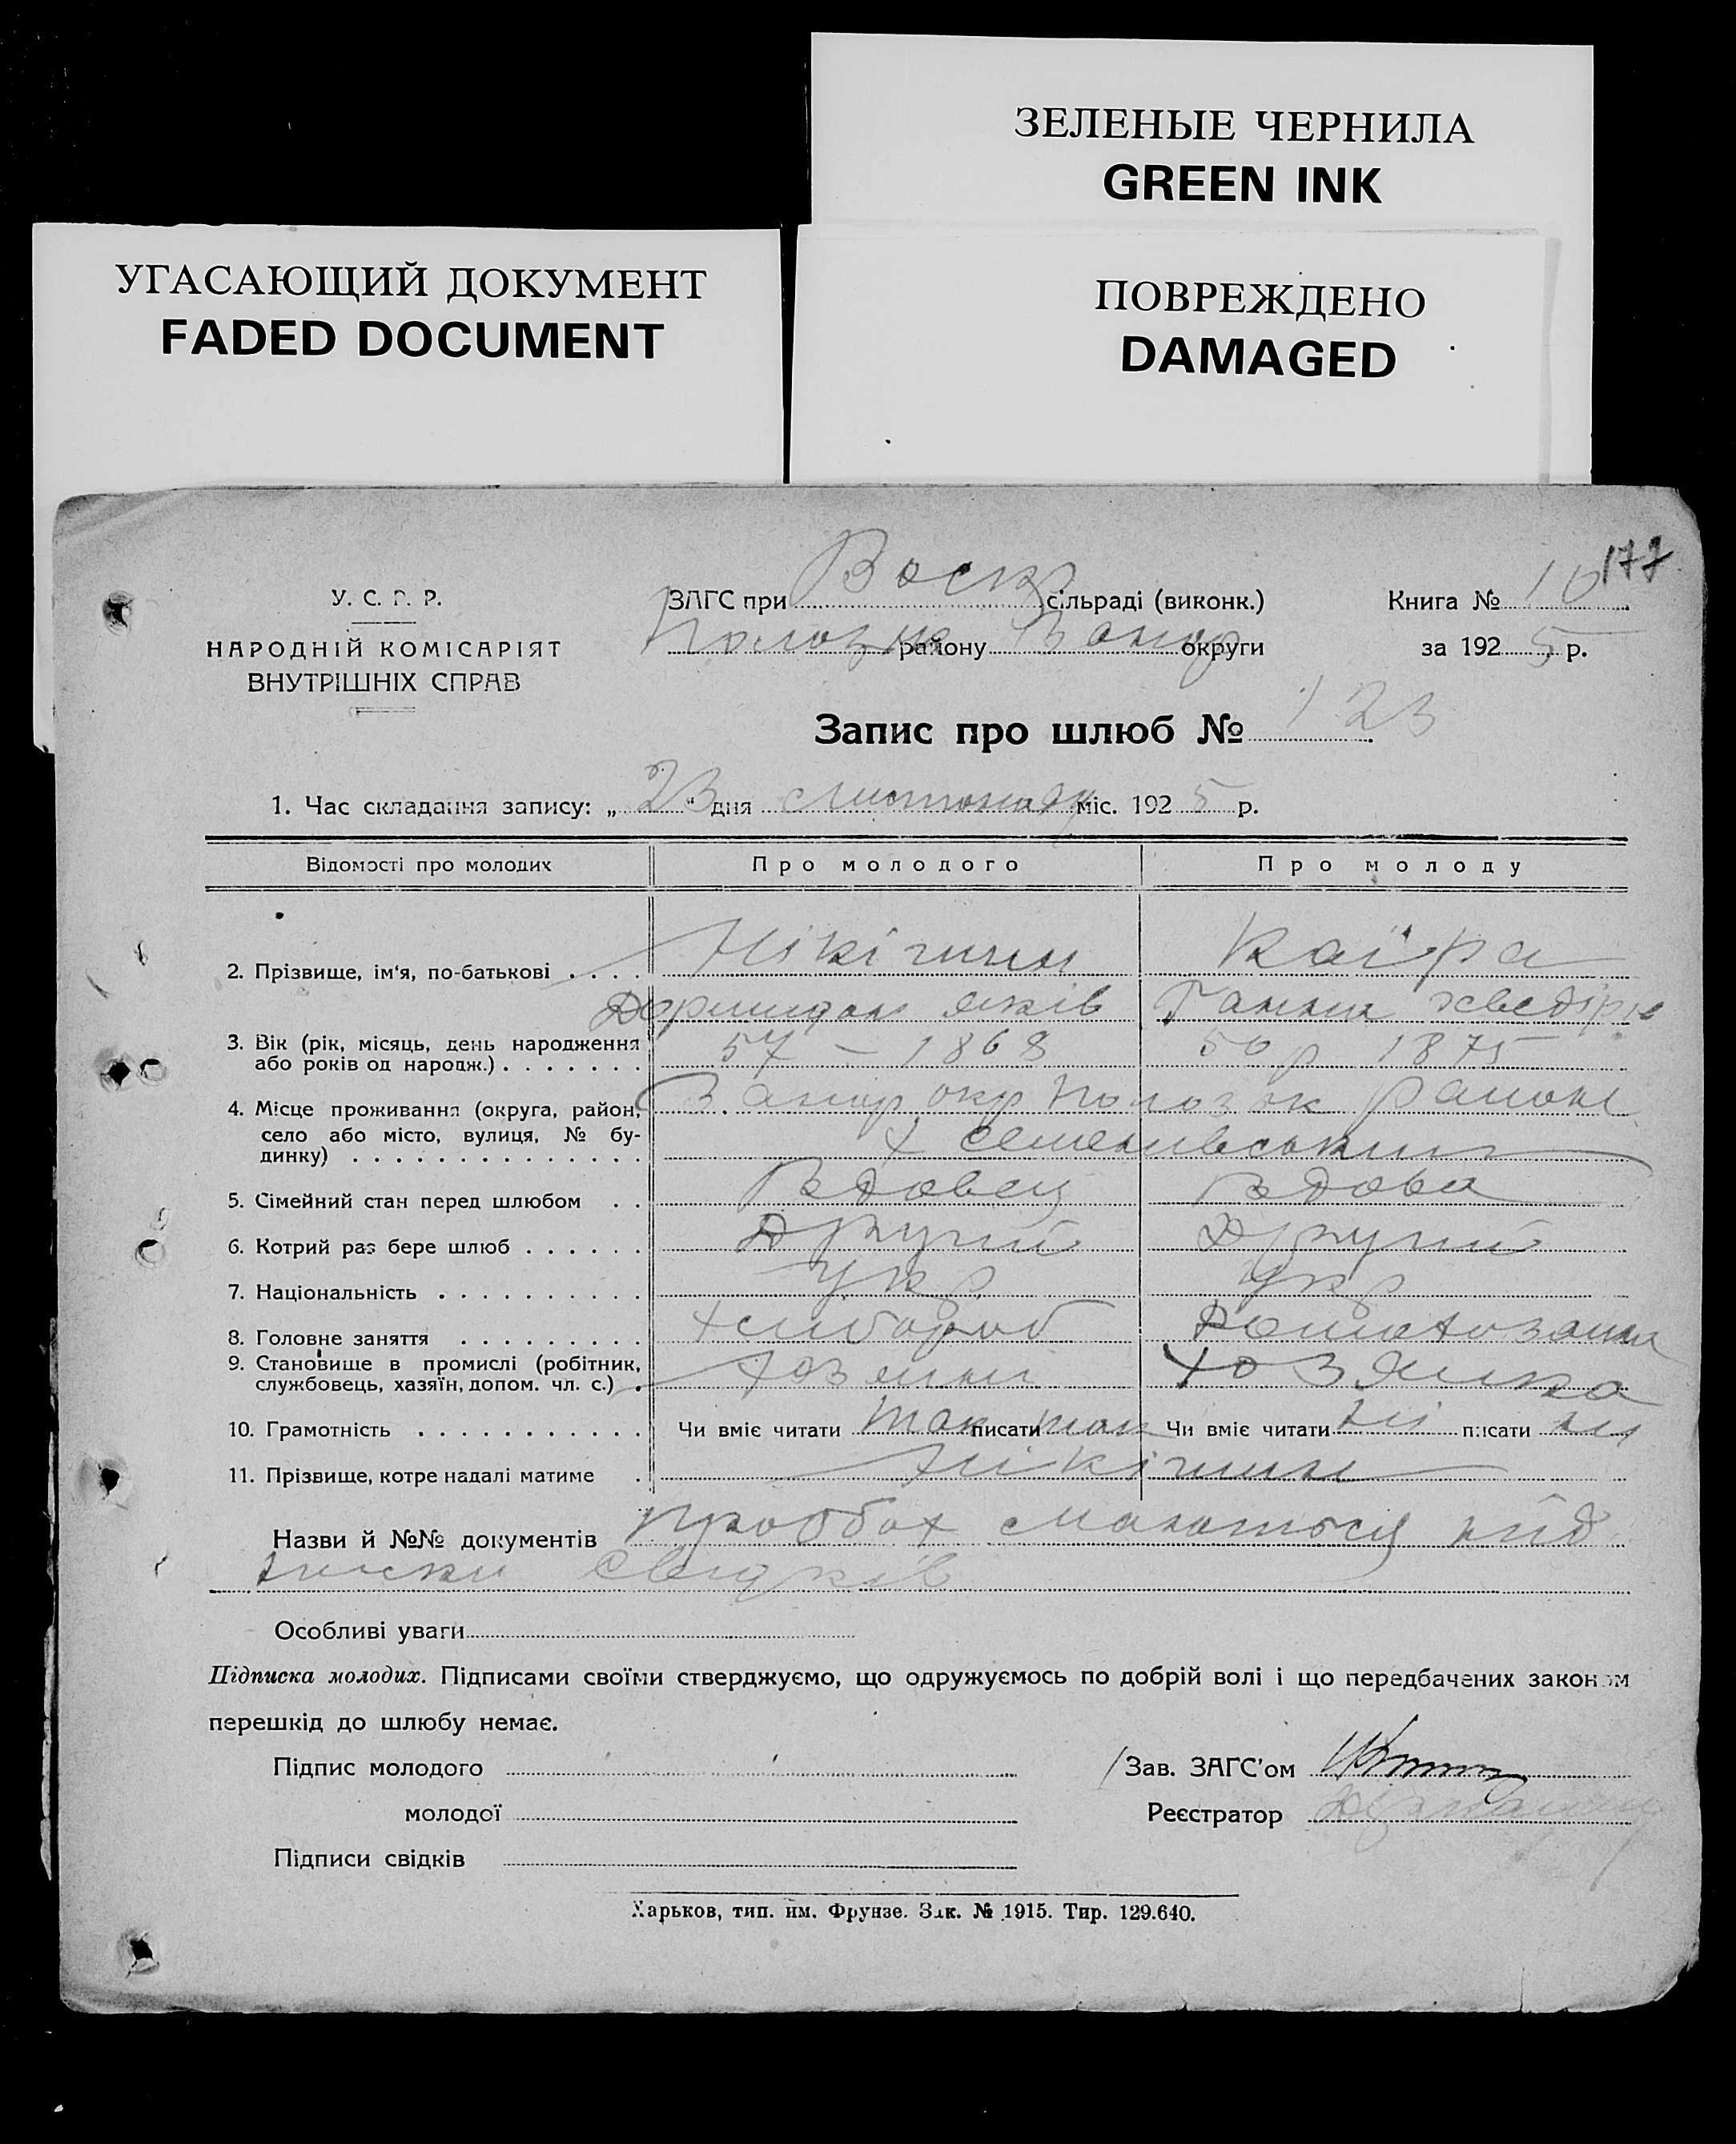 ЗЕЛЕНЫЕ ЧЕРНИЛА
GREEN INK
УГАСАЮЩИЙ ДОКУМЕНТ
FADED DOCUMENT
ПОВРЕЖДЕНО
DAMAGED
177
У. С. Р. Р.
НАРОДНІЙ КОМІСАРІЯТ
ВНУТРІШНІХ СПРАВ
ЗАГС при Воскр сільраді (виконк.)
району Запор округи
Книга № 10
за 1925 р.
Запис про шлюб № 123
1. Час складання запису: „23" дня листопаду міс. 1925 р.
Відомості про молодих Про молодого Про молоду
2. Прізвище, ім'я, по-батькові . . . . Нікітин Каіра
Яків Ганна Хведір
3. Вік (рік, місяць, день народження 57 – 1868 50 р 1875
або років од народж.) . . . . . . .
4. Місце проживання (округа, район, Запор окр Полог район
село або місто, вулиця, № бу- х Семенивський
динку) . . . . . . . . . . . . . .
5. Сімейний стан перед шлюбом . . Вдовец Вдова
6. Котрий раз бере шлюб . . . . . . Другий Другий
7. Національність . . . . . . . . . . укр укр
8. Головне заняття . . . . . . . . . хлибороб
9. Становище в промислі (робітник, хозяин хозяика
службовець, хазяїн, допом. чл. с.) .
10. Грамотність . . . . . . . . . . . Чи вміє читати так писати так Чи вміє читати ні писати ни
11. Прізвище, котре надалі матиме . Нікітин
Назви й №№ документів про обох мається під
писки свидків
Особливі уваги
Підписка молодих. Підписами своїми стверджуємо, що одружуємось по добрій волі і що передбачених законом
перешкід до шлюбу немає.
Підпис молодого Зав. ЗАГС'ом
молодої Реєстратор
Підписи свідків
Харьков, тип. им. Фрунзе. Зак. № 1915. Тир. 129.640.